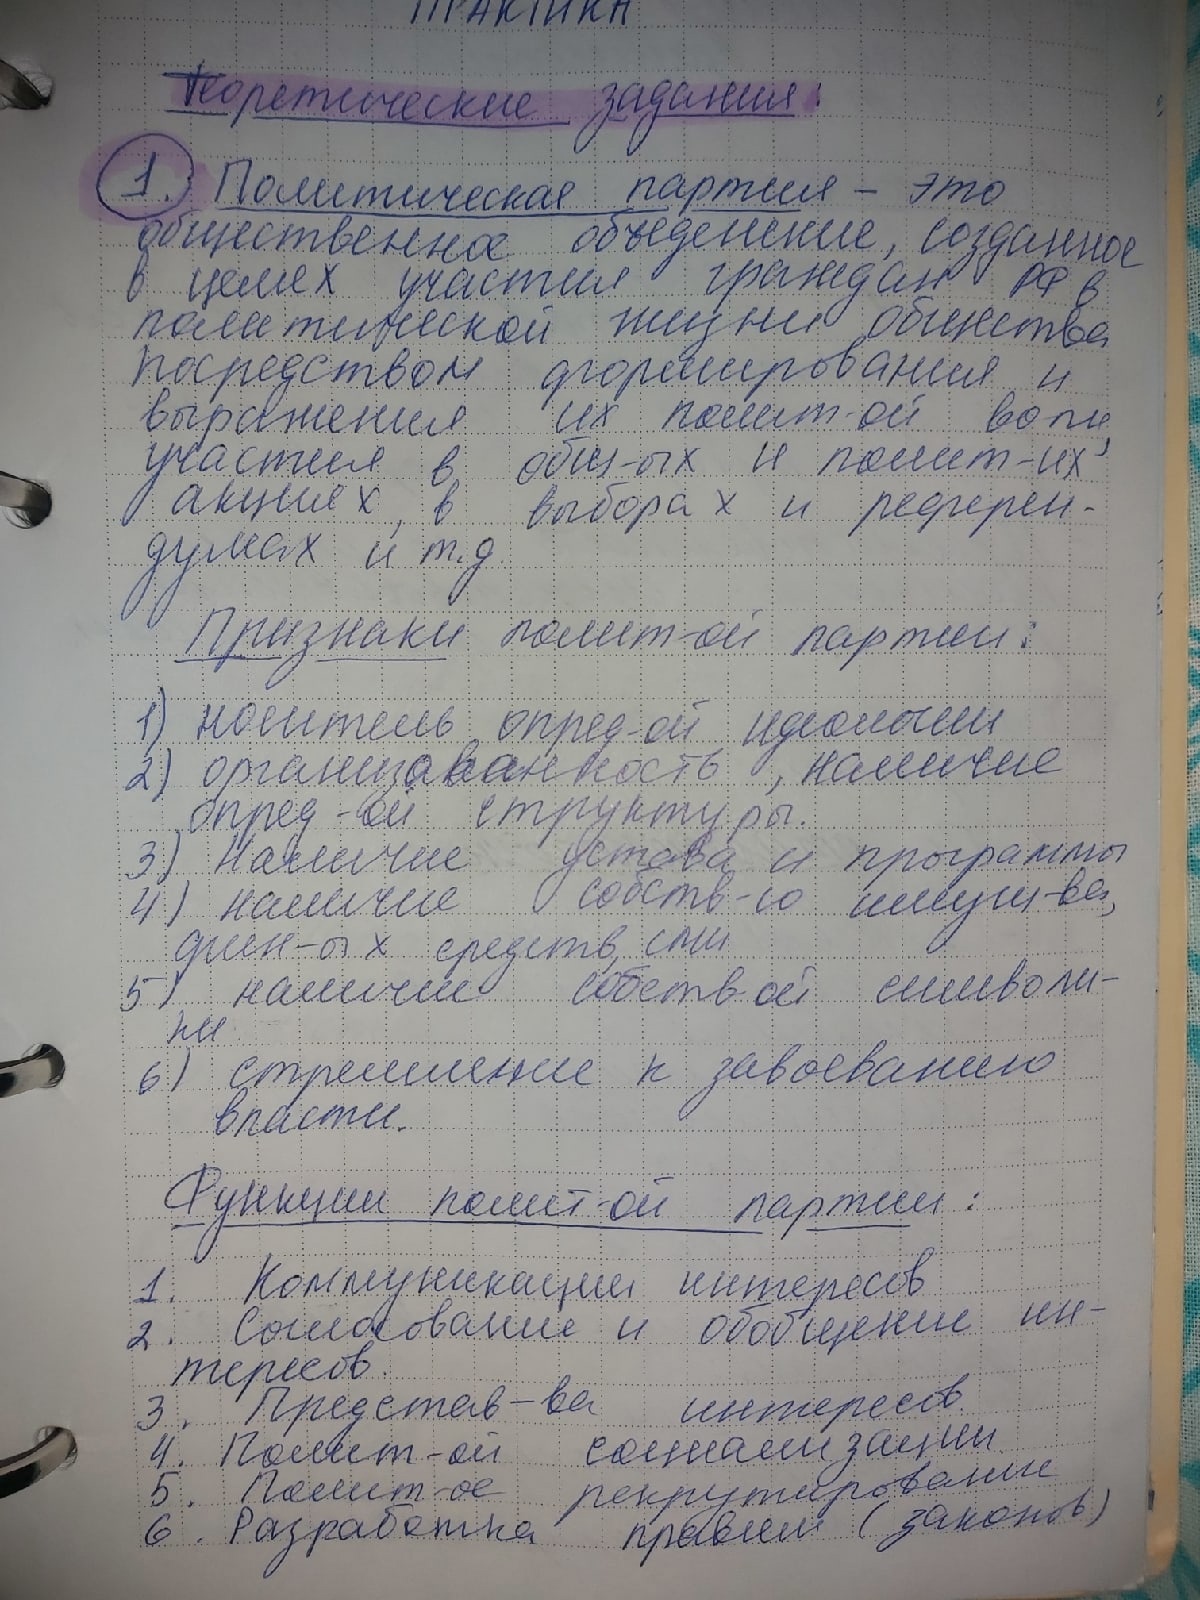 ПРАКТИКА
Теоретические задания:
1. Политическая партия – это
общественное объеденение, созданное
в целях участия граждан РФ в
политической жизни общества
посредством формирования и
выражения их полит-ой воли,
участия в общ-ых и полит-их
акциях, в выборах и референ-
думах и т.д.
Признаки полит-ой партии:
1) носитель опред-ой идеологии
2) организованность, наличие
опред-ой структуры.
3) наличие устава и программы
4) наличие собств-го имущ-ва,
фин-ых средств, сми
5) наличие собств-ой символи-
ки
6) стремление к завоеванию
власти.
Функции полит-ой партии:
1. Коммуникации интересов
2. Согласование и обобщение ин-
тересов.
3. Представ-ва интересов
4. Полит-ой социализации
5. Полит-ое рекрутирование
6. Разработка правил (законов)